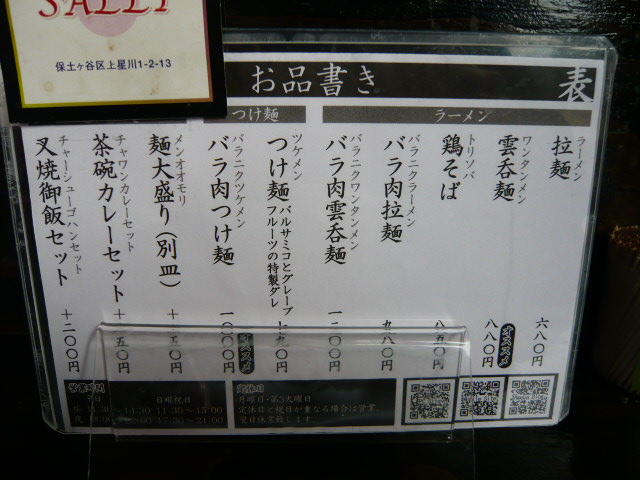 SALLY
保土ヶ谷区上星川1-2-13
お品書き
表
ラーメン
つけ麺
ラーメン
拉麺
六八〇円
ワンタンメン
雲呑麺
オススメ
八八〇円
トリソバ
鶏そば
八五〇円
バラニクラーメン
バラ肉拉麺
九八〇円
バラニクワンタンメン
バラ肉雲呑麺
一二〇〇円
ツケメン
つけ麺
バルサミコとグレープ
フルーツの特製ダレ
七九〇円
バラニクツケメン
バラ肉つけ麺
オススメ
一〇〇〇円
メンオオモリ
麺大盛り(別皿)
チャワンカレーセット
茶碗カレーセット
チャーシューゴハンセット
叉焼御飯セット
+二〇〇円
営業時間
平日
日曜祝日
昼 11:30~14:30 11:30~15:00
17:30~21:00
定休日
月曜日・第3火曜日
定休日と祝日が重なる場合は営業、
翌日休業致します。